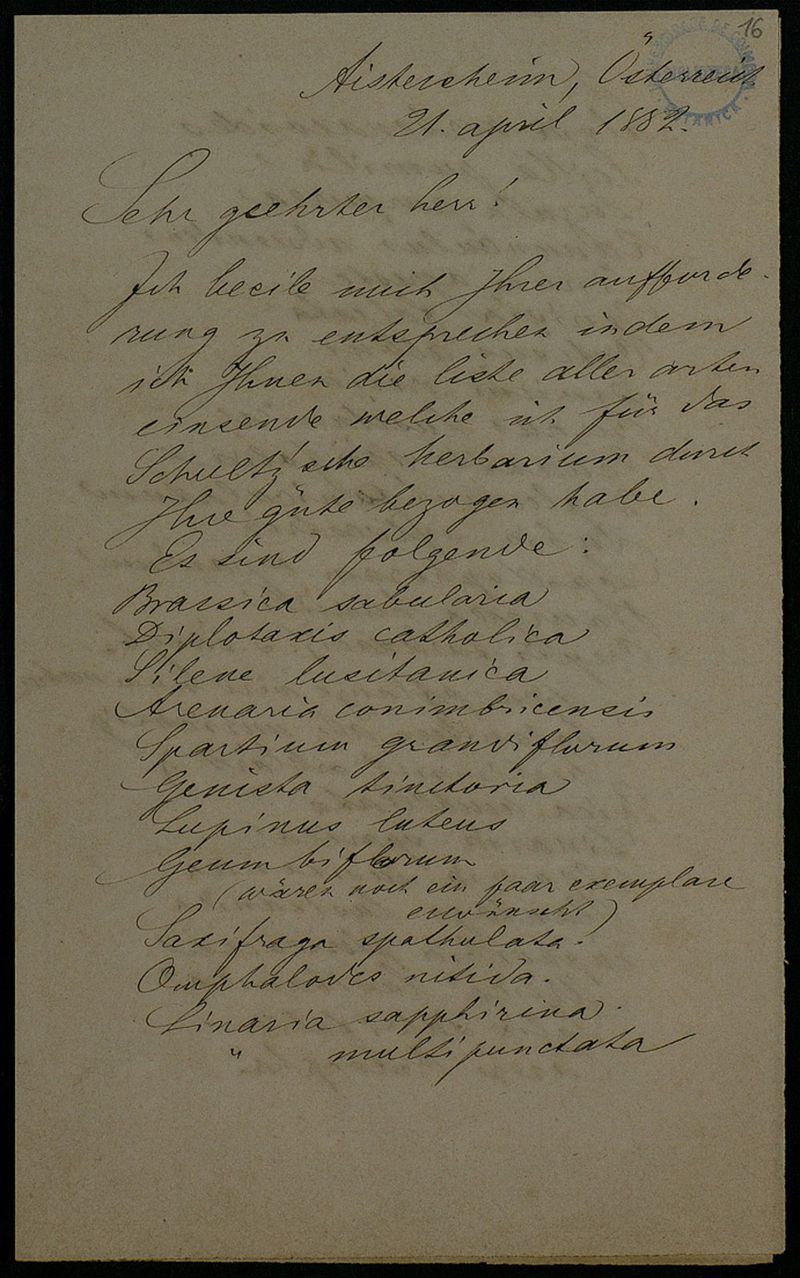 16
Aistersheim, Österreich
21. april 1882.
Sehr geehrter herr!
Ich beeile mich Ihrer aufforde-
rung zu entsprechen indem
ich Ihnen die liste aller arten
einsende welche ich für das
Schultz'sche herbarium durch
Ihre güte bezogen habe.
Es sind folgende:
Brassica sabularia
Diplotaxis catholica
Silene lusitanica
Arenaria conimbricensis
Spartium grandiflorum
Genista tinctoria
Lupinus luteus
Geum biflorum
(wären noch ein paar exemplare
erwünscht)
Saxifraga spathulata.
Omphalodes nitida.
Linaria sapphirina.
" multipunctata